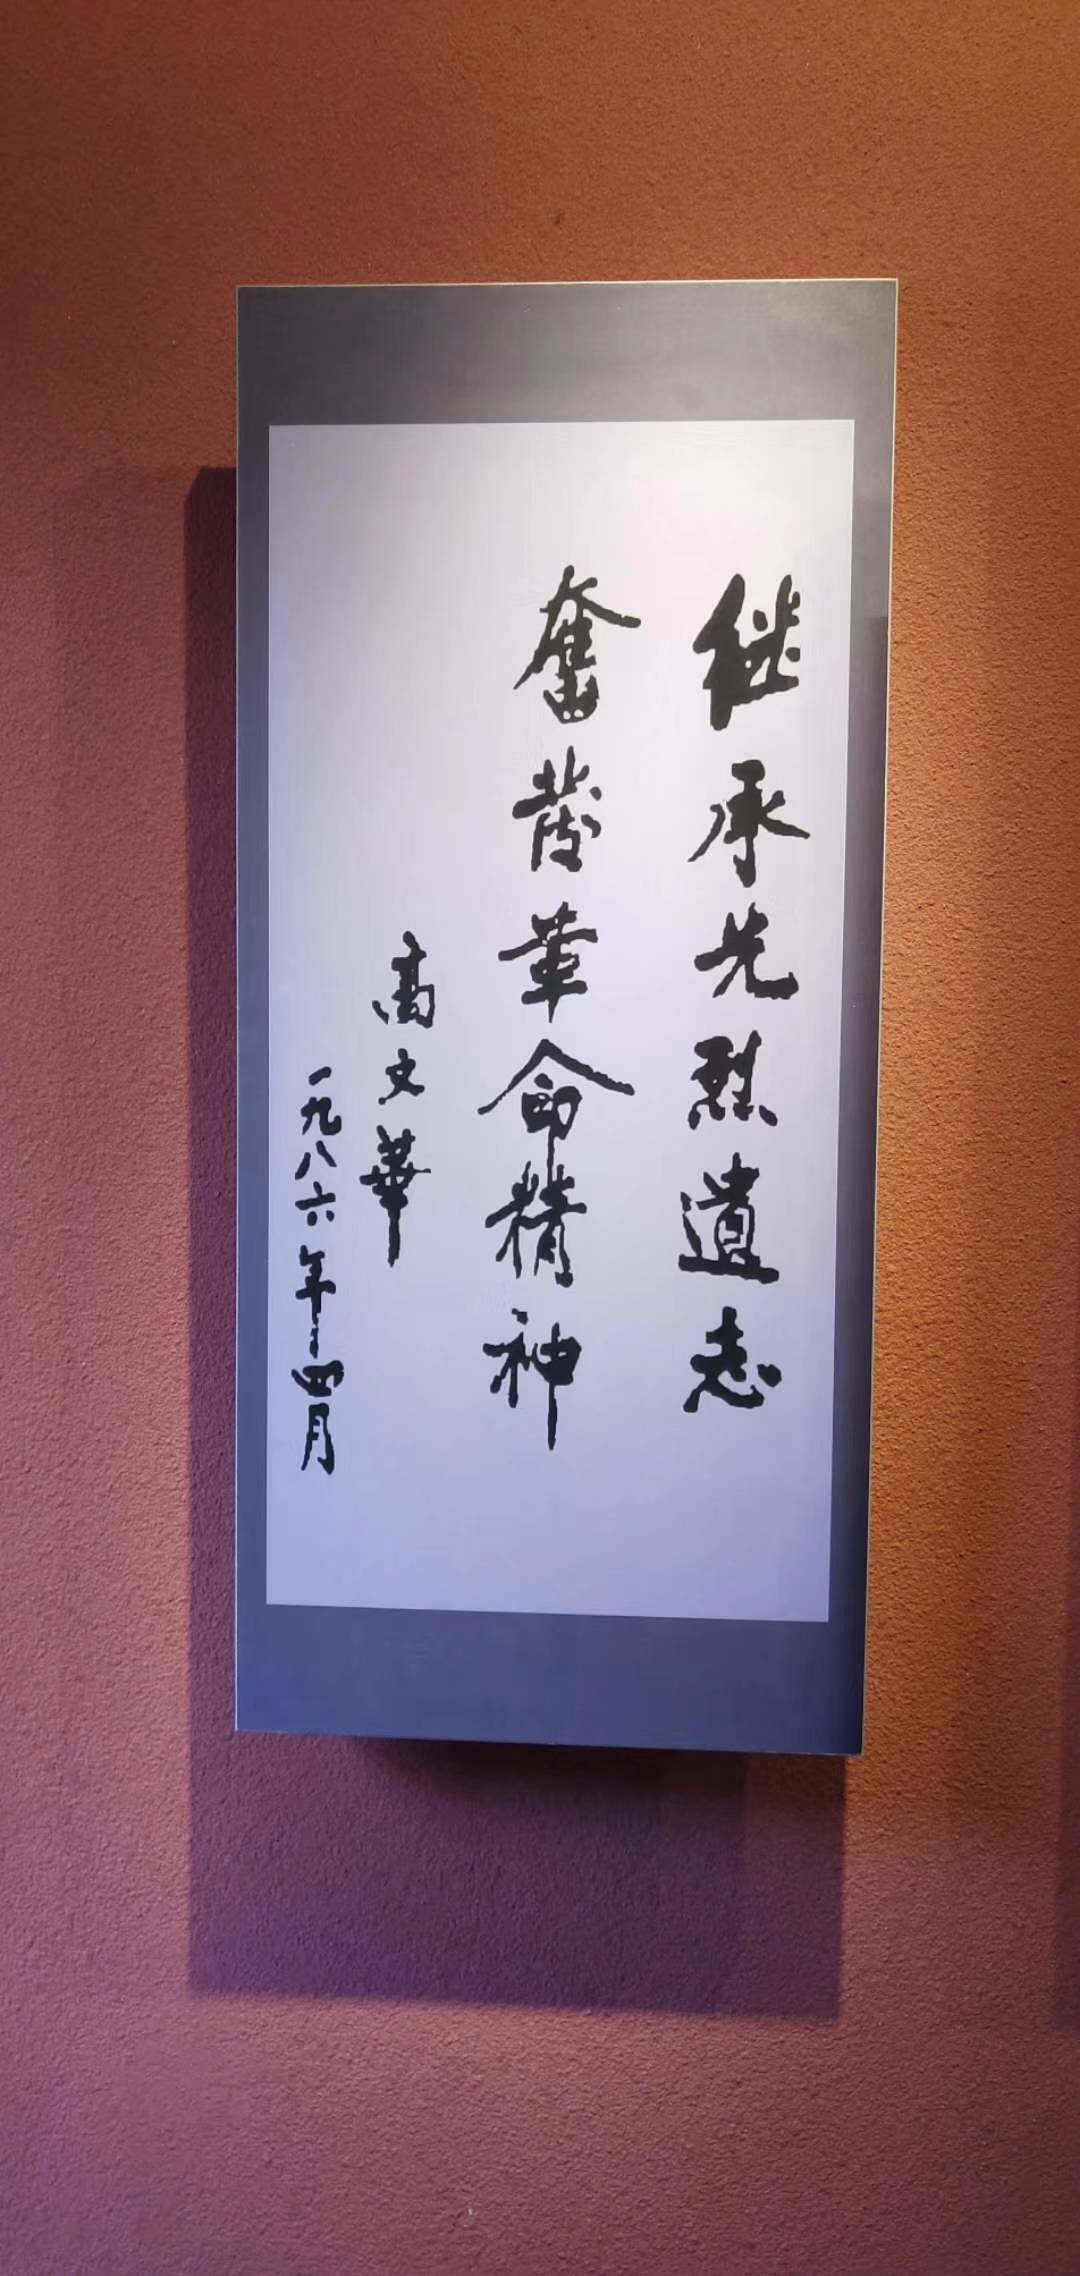 继承先烈遺志
奮發革命精神
高文華
一九八六年四月